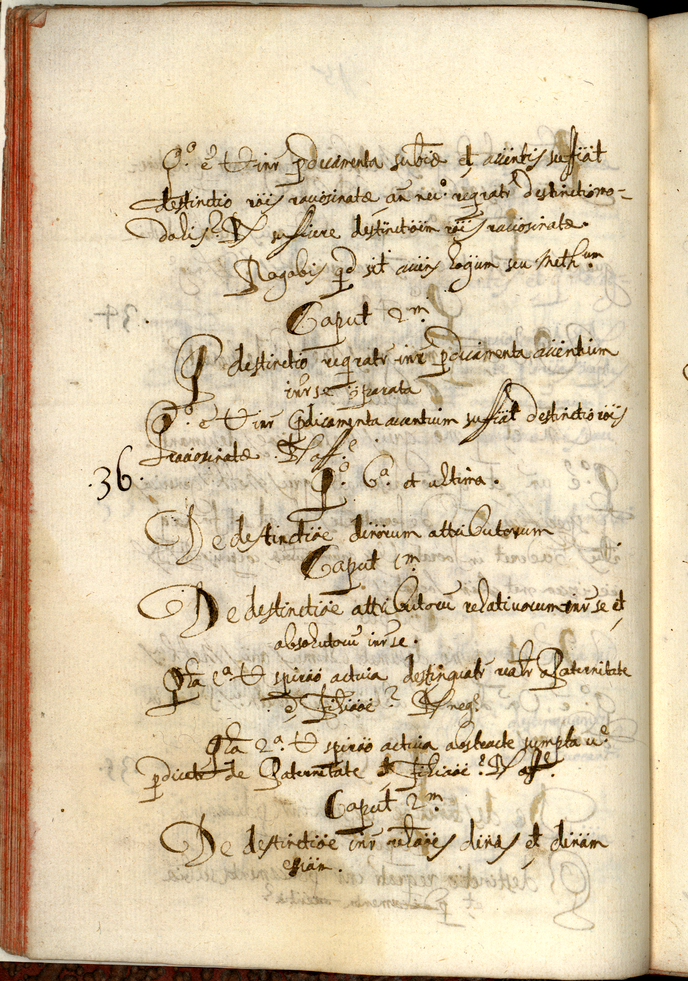 Q.º ê U inr prdicamenta subiæ et accintis suffiat
destinctio rôis raciosinatæ an nec.º reqratr destinctio mo-
dalis? R/ sufficere destinctioïm rôis raciosinatæ.
Rogabis qd sit acciis logicum seu Meth.um
Caput 2.m
Q destinctio reqratr inr prdicamenta accintium
inr se cõparata
Q.º ê U inr prdicamenta accentium suffiat destinctio rôis
raciosinatæ R/ aff.e
.36.
Q.º 6.ª et ultima.
De destinctiõe divorum attributorum
Caput 1.m
De destinctiõe attributorũ relativorum inr se et
absolutorũ inr se.
Qta 1.ª U spiraõ activa destinguatr realr a Paternitate
e Filiaõe? R/ neg.e
Qta 2.ª U spiraõ activa abstracte sumpta v.º
prdicetr de Paternitate et Filiaõe? R/ aff.e
Caput 2.m
De destinctiõe inr relaões divas et divam
essiam.